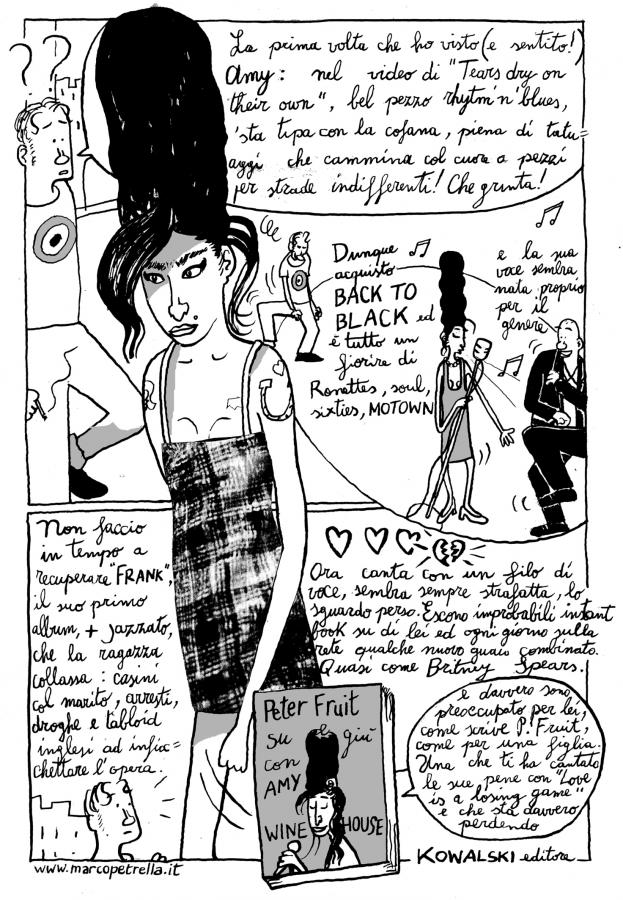 ? ?
La prima volta che ho visto (e sentito!)
Amy: nel video di "Tears dry on
their own", bel pezzo rhytm'n'blues,
'sta tipa con la cofana, piena di tatu=
aggi che cammina col cuore a pezzi
per strade indifferenti! Che grinta!
Dunque
acquisto
BACK TO
BLACK ed
è tutto un
fiorire di
Ronettes, soul,
sixties, MOTOWN
e la sua
voce sembra
nata proprio
per il
genere
Non faccio
in tempo a
recuperare "FRANK",
il suo primo
album, + jazzato,
che la ragazza
collassa: casini
col marito, arresti,
droghe e tabloid
inglesi ad infioc=
chettare l'opera.
Ora canta con un filo di
voce, sembra sempre strafatta, lo
sguardo perso. Escono improbabili instant
book su di lei ed ogni giorno sulla
rete qualche nuovo guaio combinato.
Quasi come Britney Spears.
Peter Fruit
su e giù
con
AMY
WINE HOUSE
e davvero sono
preoccupato per lei,
come scrive P. Fruit,
come per una figlia.
Una che ti ha cantato
le sue pene con "Love
is a losing game"
e che sta davvero
perdendo
KOWALSKI editore
www.marcopetrella.it